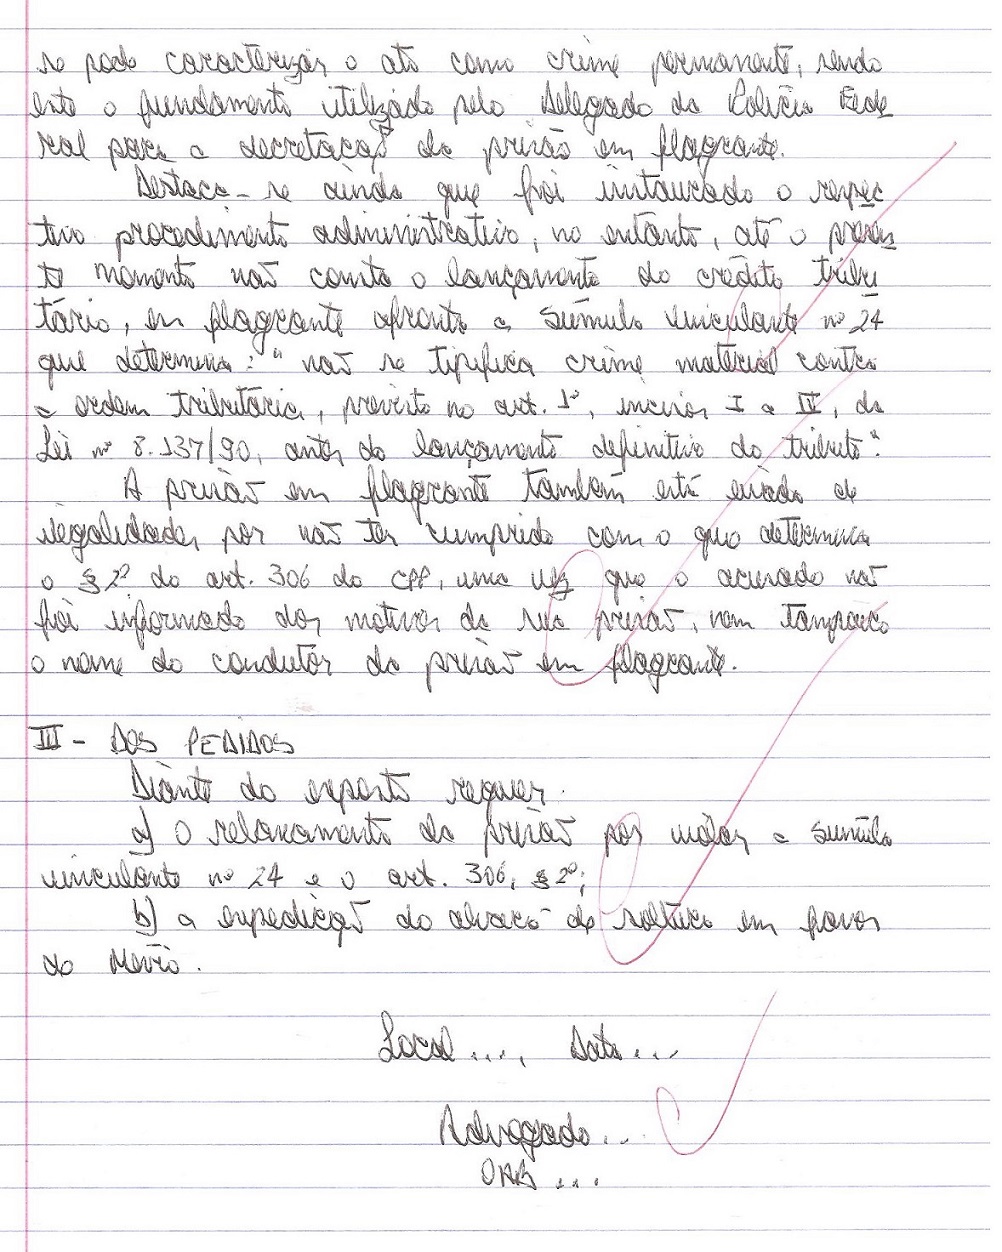 se pode caracterizar o ato como crime permanente, sendo
este o fundamento utilizado pelo Delegado da Polícia Fede
ral para a decretação da prisão em flagrante.
Destaca-se ainda que foi instaurado o respec
tivo procedimento administrativo, no entanto, até o presen
te momento não consta o lançamento do crédito tribu
tário, em flagrante afronta a súmula vinculante nº 24
que determina: "não se tipifica crime material contra
a ordem tributária, previsto no art. 1º, incisos I a IV, da
Lei nº 8.137/90, antes do lançamento definitivo do tributo".
A prisão em flagrante também está eivada de
ilegalidades, por não ter cumprido com o que determina
o § 2º do art. 306 do CPP, uma vez que o acusado não
foi informado dos motivos da sua prisão, nem tampouco
o nome do condutor da prisão em flagrante.
III - DOS PEDIDOS
Diante do exposto requer:
a) O relaxamento da prisão por violar a súmula
vinculante nº 24 e o art. 306, § 2º;
b) a expedição do alvará de soltura em favor
de Mévio.
Local ..., Data ...
Advogado ...
OAB ...